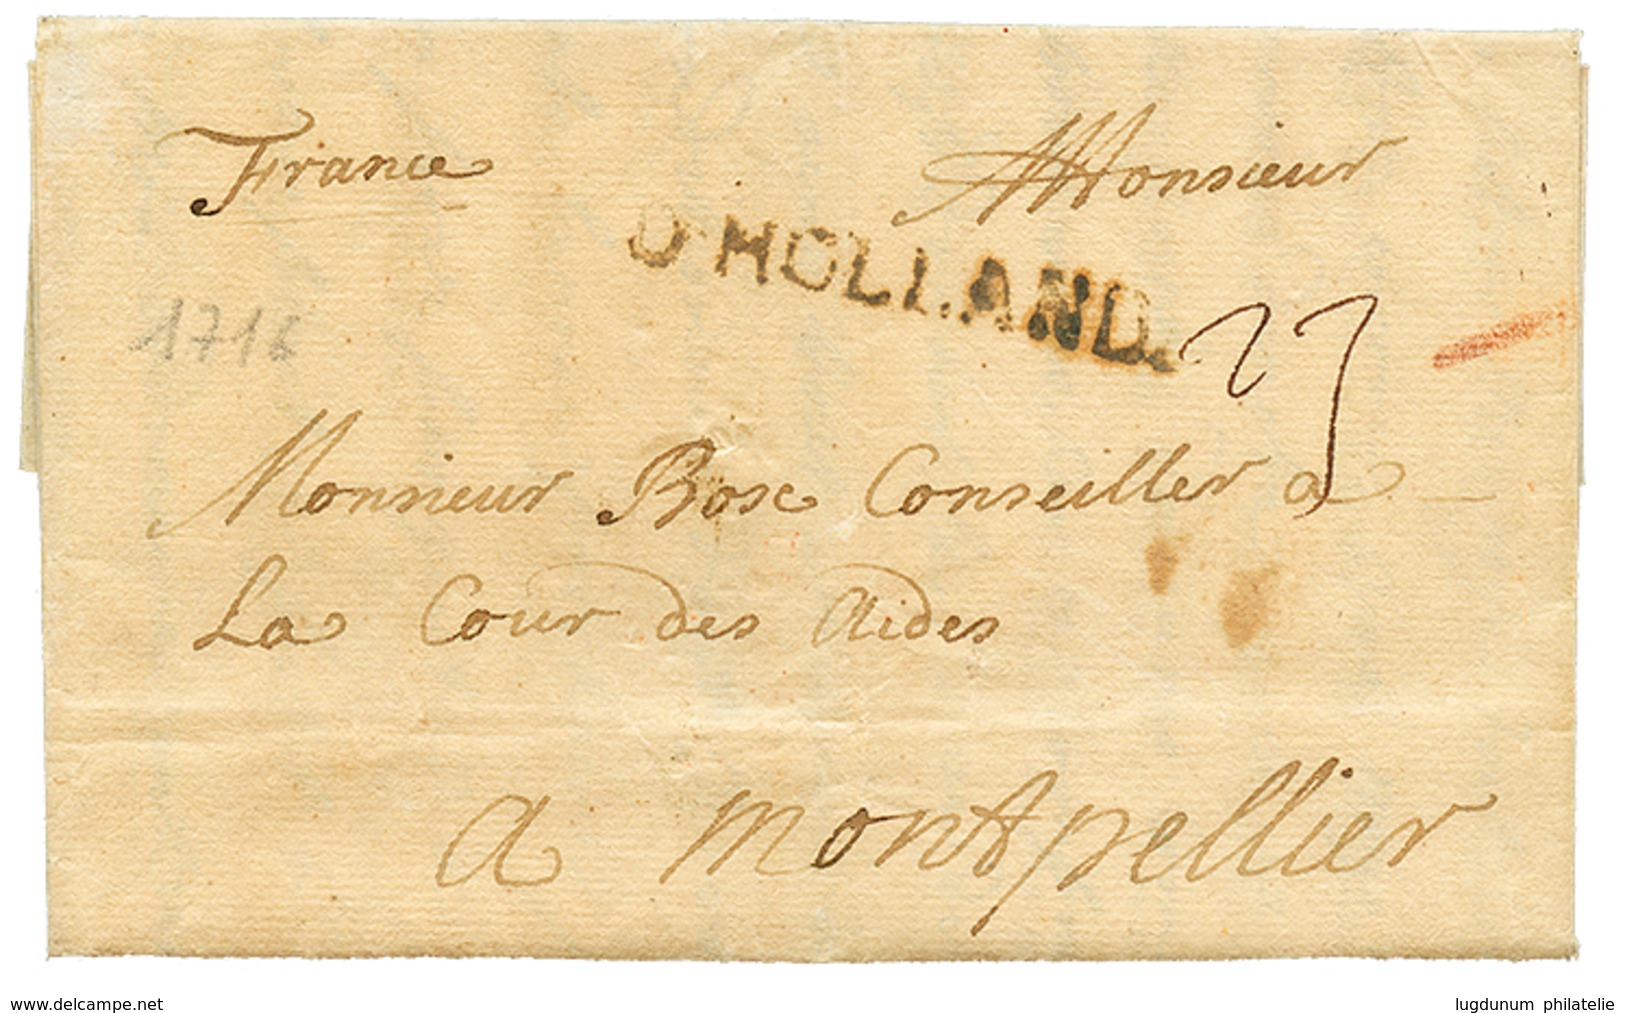 France
Monsieur
D'HOLLAND.
23
1716
Monsieur Bosc Conseiller a
La Cour des Aides
a Montpellier
www.delcampe.net
lugdunum philatelie